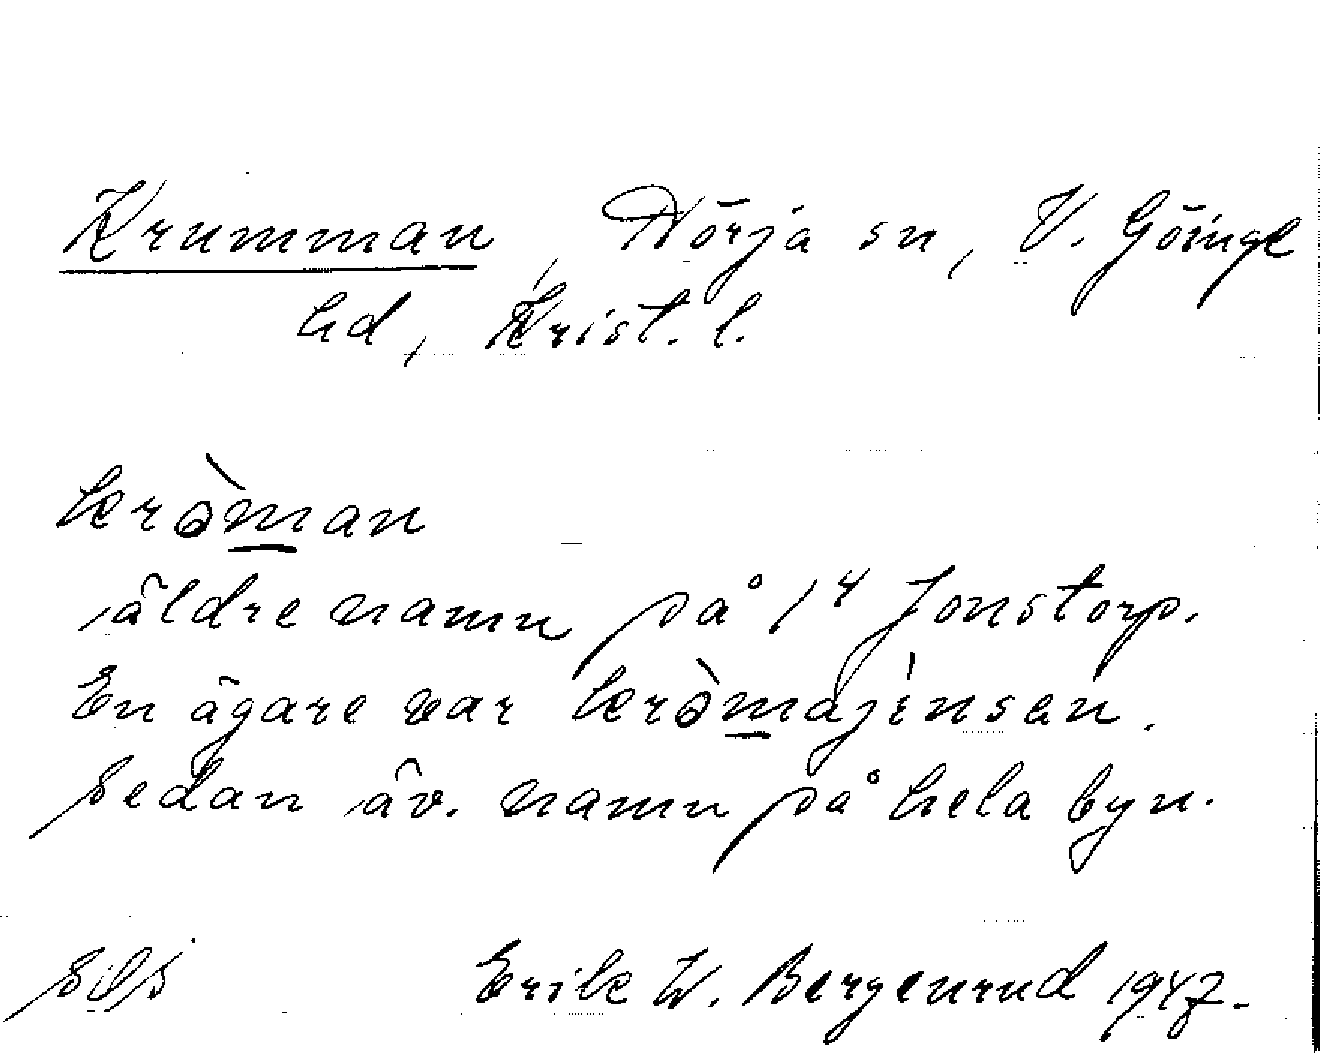 Krumman, Nörja sn, V. Göinge
hd, Krist. l.
kròman
äldre namn på 1⁴ Jonstorp.
En ägare var kròmajènsen.
Sedan äv. namn på hela byn.
Erik W. Bergenrud 1947.